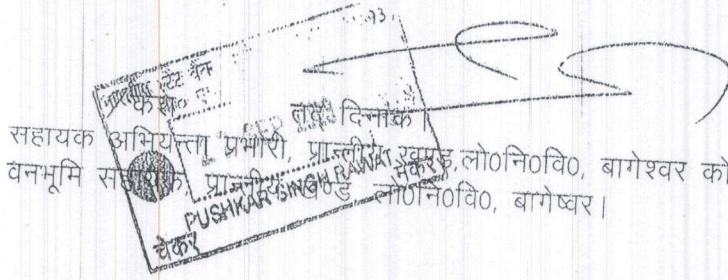 93
क्र०सं० तद् दिनांक
सहायक अभियन्ता प्रभारी, प्रान्तीय खण्ड, लो०नि०वि०, बागेश्वर को
वनभूमि सहायक, प्रान्तीय खण्ड लो०नि०वि०, बागेष्वर।
PUSHKAR SINGH RAWAT मेकर
चेकर